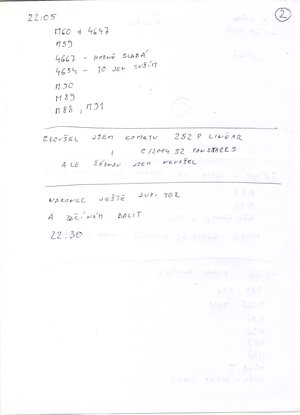 22:05
2
M60 + 4647
M59
4667 - HODNĚ SLABÁ
4654 - TO JEN TUŠÍM
M90
M89
M88, M91
ZKOUŠEL JSEM KOMETU 252 P LINEAR
I C/2014 S2 PANSTARRS
ALE ŽÁDNOU JSEM NENAŠEL
NAKONEC JEŠTĚ JUPITER
A ZAČÍNÁM BALIT
22:30